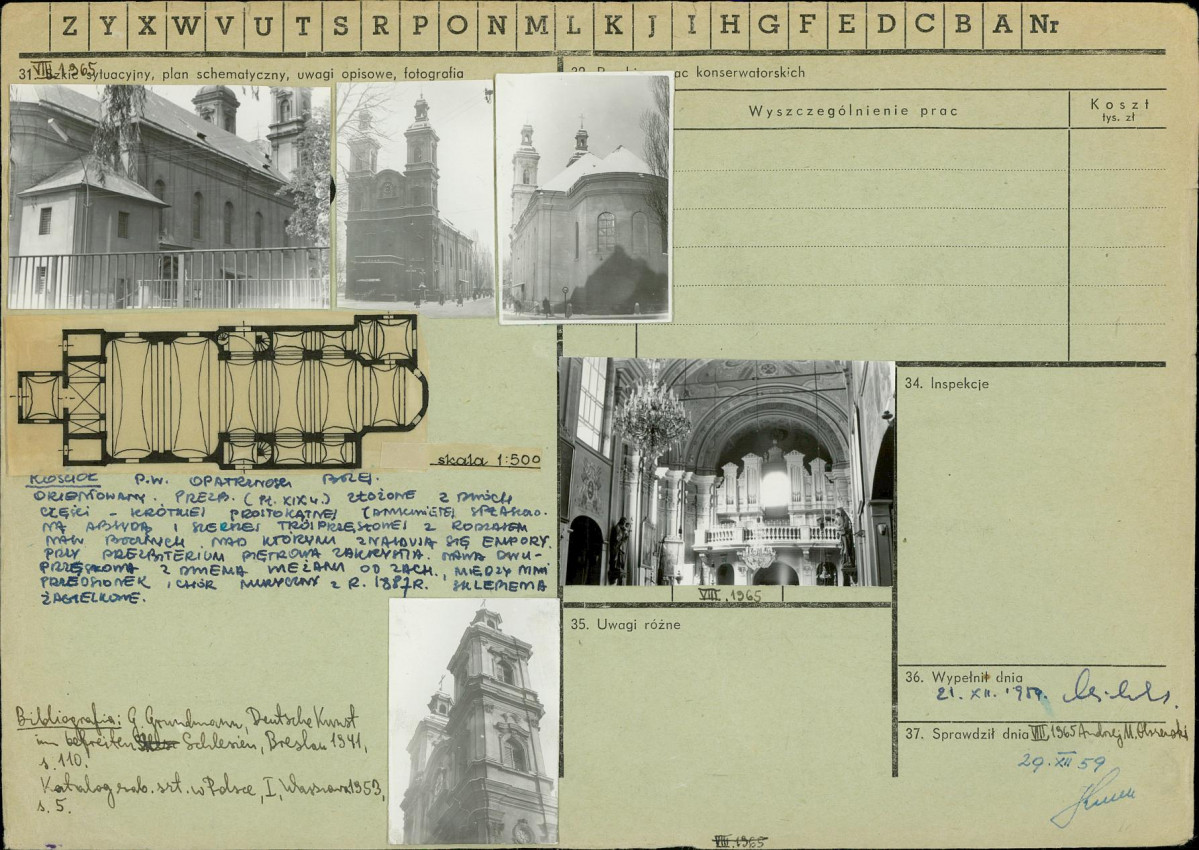 Z Y X W V U T S R P O N M L K J I H G F E D C B A Nr
VIII 1965
31. Szkic sytuacyjny, plan schematyczny, uwagi opisowe, fotografia
konserwatorskich
Wyszczególnienie prac
Koszt
tys. zł
skala 1:500
KOŚCIÓŁ P.W. OPATRZNOŚCI BOŻEJ.
ORIENTOWANY. PREZB. (PŁ. XIX W.) ZŁOŻONE Z DWÓCH
CZĘŚCI - KRÓTKIEJ PROSTOKĄTNEJ ZAMKNIĘTEJ SPŁASZCZO-
NĄ ABSYDĄ I SZERSZEJ TRÓJPRZĘSŁOWEJ Z RODZAJEM
NAW BOCZNYCH, NAD KTÓRYMI ZNAJDUJĄ SIĘ EMPORY.
PRZY PREZBITERIUM PIĘTROWA ZAKRYSTIA. NAWA DWU-
PRZĘSŁOWA Z DWIEMA WIEŻAMI OD ZACH., MIĘDZY NIMI
PRZEDSIONEK I CHÓR MUZYCZNY Z R. 1887R. SKLEPIENIA
ŻAGIELKOWE.
VIII. 1965
34. Inspekcje
35. Uwagi różne
Bibliografia: G. Grundmann, Deutsche Kunst
im befreiten Schlesien, Breslau 1941,
s. 110.
Katalog zab. szt. w Polsce, I, Warszawa 1953,
s. 5.
36. Wypełnił dnia
21. XII. 1959.
37. Sprawdził dnia VIII 1965 Andrzej M. Olszewski
29. XII 59
VIII. 1965